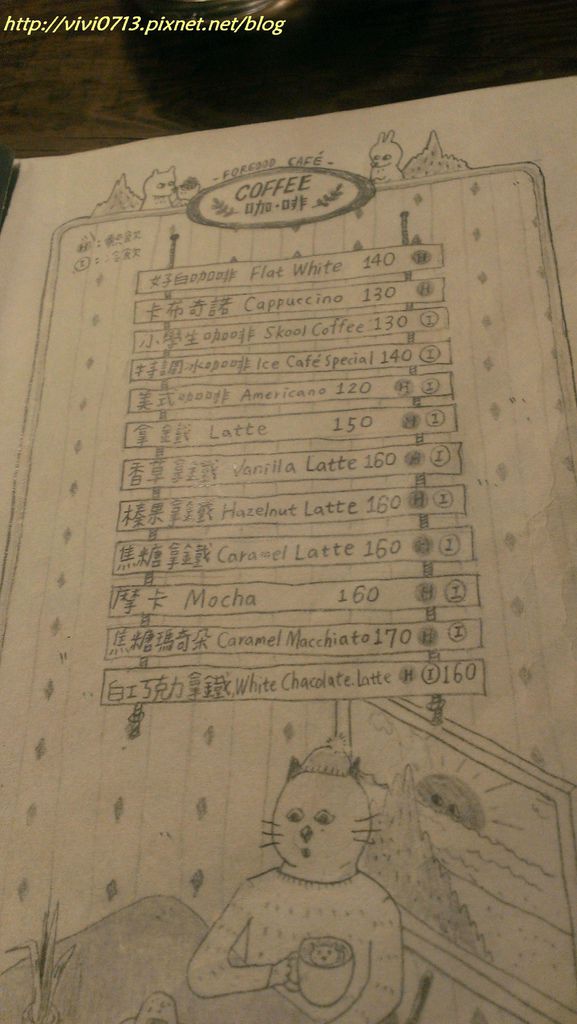 http://vivi0713.pixnet.net/blog
- FORGOOD CAFÉ -
COFFEE
咖·啡
H:熱飲
I:冷飲
好白咖啡 Flat White 140 H
卡布奇諾 Cappuccino 130 H
小學生咖啡 Skool Coffee 130 I
特調冰咖啡 Ice Café Special 140 I
美式咖啡 Americano 120 H I
拿鐵 Latte 150 H I
香草拿鐵 Vanilla Latte 160 H I
榛果拿鐵 Hazelnut Latte 160 H I
焦糖拿鐵 Caramel Latte 160 H I
摩卡 Mocha 160 H I
焦糖瑪奇朵 Caramel Macchiato 170 H I
白巧克力拿鐵 White Chacolate. Latte H I 160